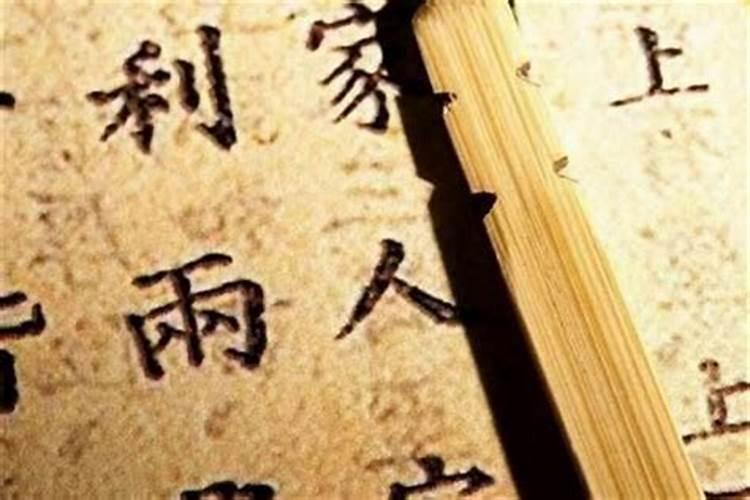 上上
家人
利兩